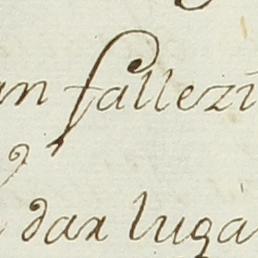 an fallezi
dar luga